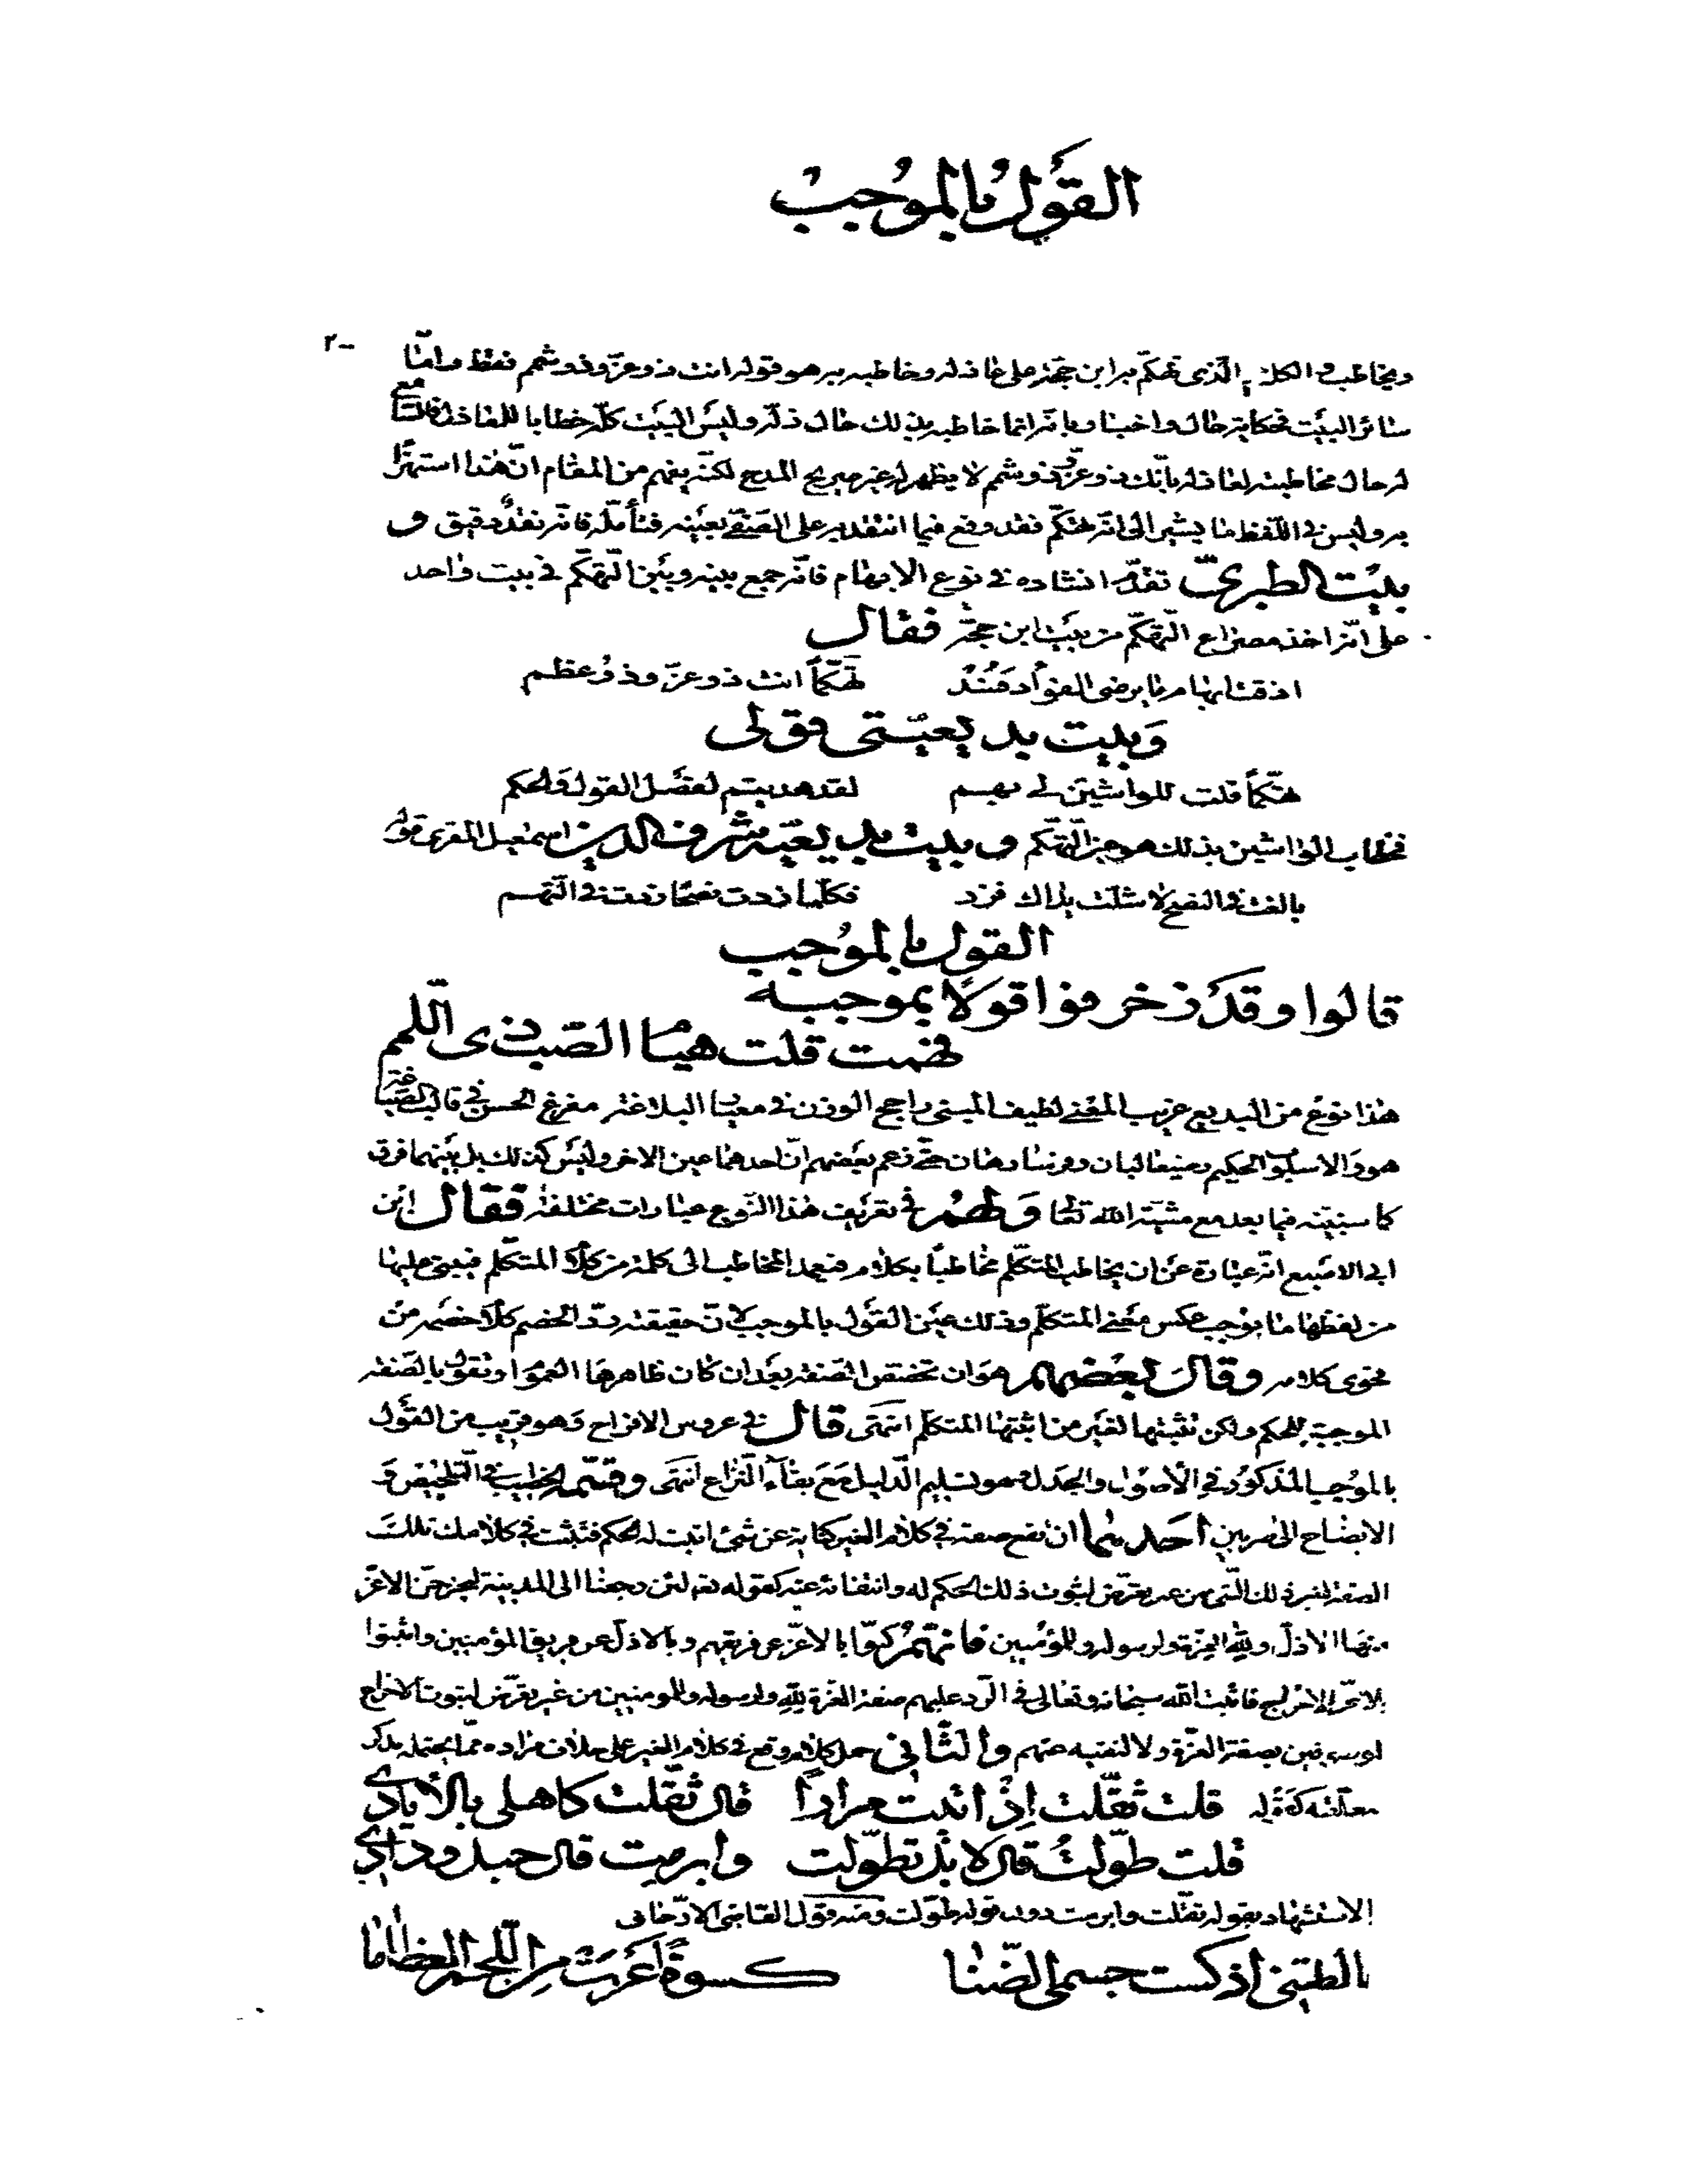 القول بالموجب
٢٠
ويخاطب والكلام الذى تهكم به ابن حجة على عاذله وخاطبه به هو قوله انت ذو عز وذو شمم فقط واما
سائر البيت فحكاية حال واخبار بانه انما خاطبه بذلك حال ذله وليس البيت كله خطابا للعاذل فالسامع
له حال مخاطبته لعاذله بانك ذو عز وذو شمم لا يظهر له غير صريح المدح لكنه يفهم من المقام ان هذا استهزأ
به وليس فى اللفظ ما يشير الى انه تهكم فقد وقع فيما انتقد به على الصفى بعينه فتأمله فانه نقد دقيق و
بيت الطبرى تقدم انشاده فى نوع الابهام فانه جمع بينه وبين التهكم فى بيت واحد
على انه اخذ مصراع التهكم من بيت ابن حجة فقال
تهكما انت ذو عز وذو عظم
وبيت بديعيتى قولى
تهكما قلت للواشين لى بهم لقد هديتم لفصل القول والحكم
فخطاب الواشين بذلك هو عين التهكم وبيت بديعية شرف الدين اسمعيل المقرى قوله
بالغت فى النصح لا شلت يداك فزد فكلما زدت نصحا زدت فى التهم
القول بالموجب
قالوا وقد زخرفوا قولا بموجبه
فهمت قلت هيام الصب ذى اللمم
هذا نوع من البديع غريب المعنى لطيف المبنى راجح الوزن فى معيار البلاغة مفرغ الحسن فى قالب الصياغة
هو والاسلوب الحكيم رضيعا لبان وفرسا رهان حتى زعم بعضهم ان احدهما عين الاخر وليس كذلك بل بينهما فرق
كما سنبينه فيما بعد مع مشية الله تعالى ولهم فى تعريف هذا النوع عبارات مختلفة فقال ابن
ابى الاصبع انه عبارة عن ان يخاطب المتكلم مخاطبا بكلام فيعمد المخاطب الى كلمة من كلام المتكلم فيبنى عليها
من لفظها ما يوجب عكس معنى المتكلم وذلك عين القول بالموجب لان حقيقته رد الخصم كلام خصمه من
فحوى كلامه وقال بعضهم هو ان تخصص الصفة بعد ان كان ظاهرها العموم او تقول بالصفة
الموجبة للحكم ولكن تثبتها لغير من اثبتها المتكلم انتهى قال فى عروس الافراح وهو قريب من القول
بالموجب المذكور فى الاصول والجدل وهو تسليم الدليل مع بقاء النزاع انتهى وقسمه الخطيب فى التلخيص و
الايضاح الى ضربين احدهما ان تقع صفة فى كلام الغير كناية عن شئ اثبت له الحكم فتثبت فى كلامك تلك
الصفة لغير ذلك الشئ من غير تعرض لثبوت ذلك الحكم له وانتفائه عنه كقوله تعالى لئن رجعنا الى المدينة ليخرجن الاعز
منها الاذل ولله العزة ولرسوله وللمؤمنين فانهم كنوا بالاعز عن فريقهم وبالاذل عن فريق المؤمنين واثبتوا
للاعز الاخراج فاثبت الله سبحانه وتعالى فى الرد عليهم صفة العزة لله ولرسوله وللمومنين من غير تعرض لثبوت الاخراج
للموصوفين بصفة العزة ولا لنفيه عنهم والثانى حمل كلام وقع فى كلام الغير على خلاف مراده مما يحتمله بذكر
متعلقه كقوله قلت ثقلت اذ اتيت مرارا قال ثقلت كاهلى بالايادى
قلت طولت قال لا بل تطولت وابرمت قال حبل ودادى
الاستشهاد بقوله ثقلت وابرمت دون قوله طولت ومنه قول القاضى الارجانى
غالطتنى اذ كست جسمى الضنا كسوة اعرت من اللحم العظاما